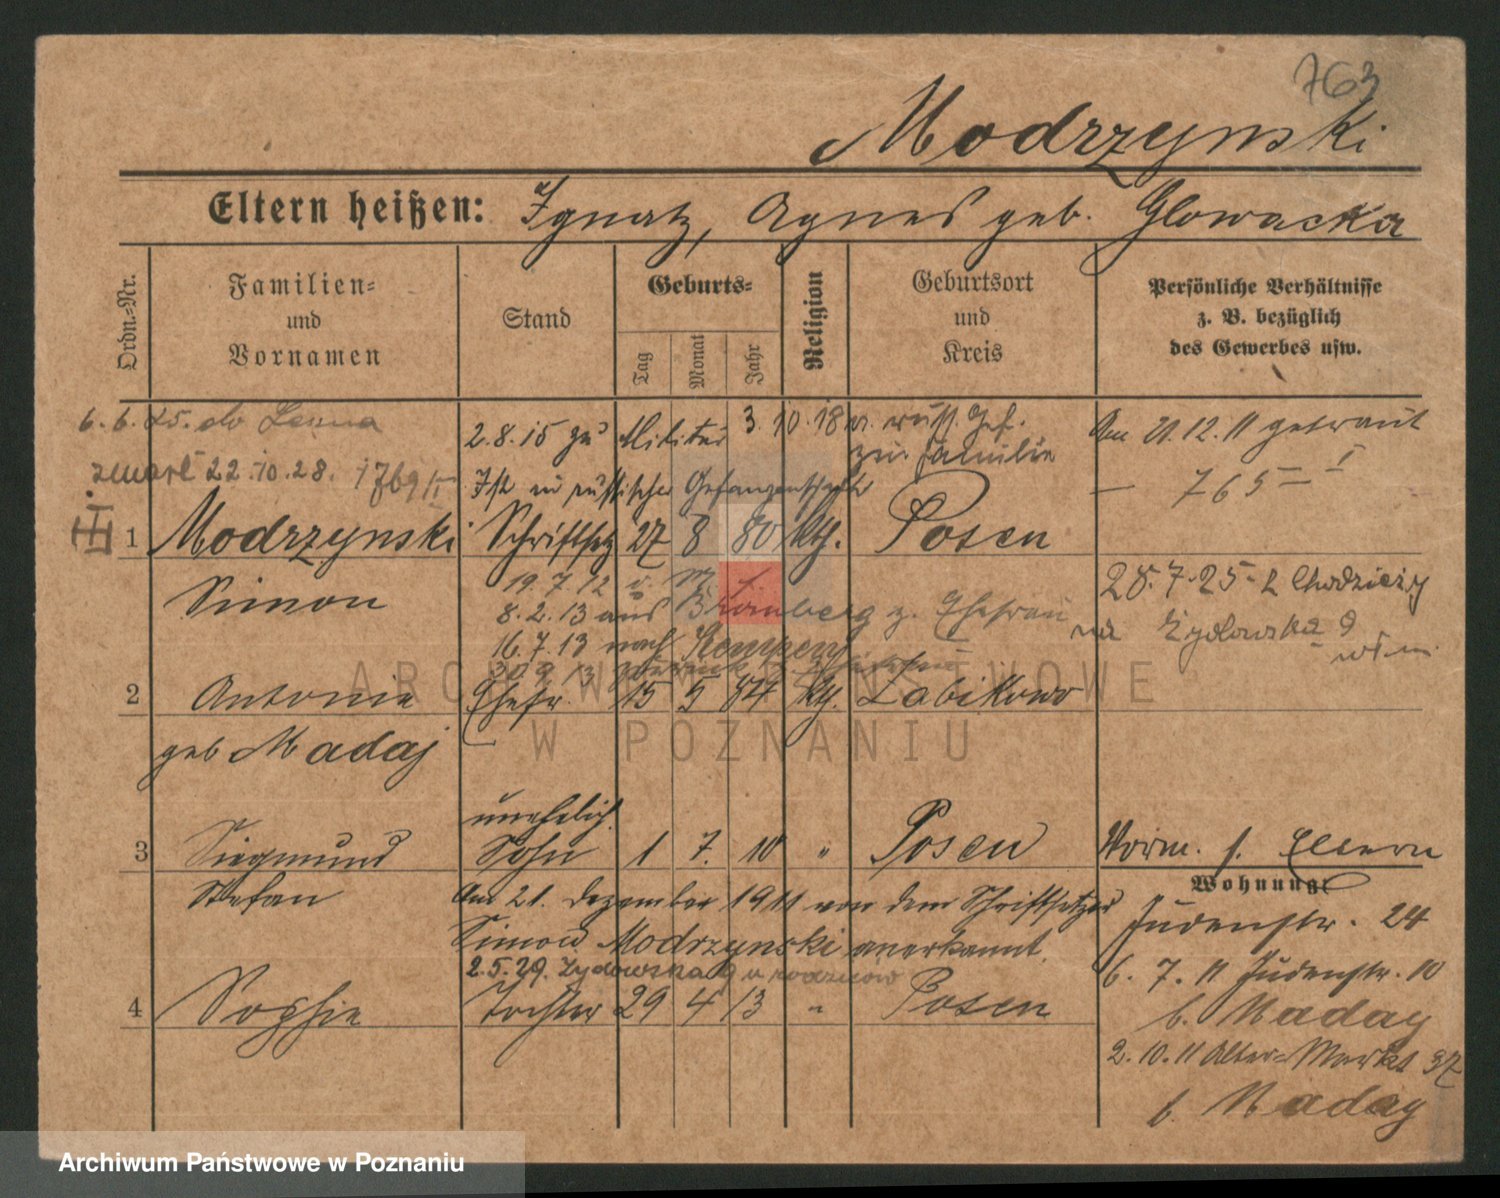 763
Modrzynski
Eltern heißen: Ignatz, Agnes geb. Glowacka
Ordn.-Nr.
Familien-
und
Vornamen
Stand
Geburts-
Tag
Monat
Jahr
Religion
Geburtsort
und
Kreis
Persönliche Verhältnisse
z. B. bezüglich
des Gewerbes usw.
6.6.25. do
zmarł 22.10.28.
2.8.15 zu Militär 3.10.18 a. russ. Gef.
zur Familie
Am 21.12.11 getraut
Ist in russischer Gefangenschaft
765
1 Modrzynski Schriftsetz 27 8 80 kth. Posen
Simon
19.7.12 v. M.
8.2.13 aus Bromberg z. Ehefrau
16.7.13 nach Kempen
30 9 13 zurück
28.7.25. z Chodzieży
na Żydowska 9
2 Antonie Ehefr. 15 5 84 kth. Zabikowo
geb Madaj
unehelich.
3 Siegmund Sohn 1 7. 10 " Posen
Vorm. s. Eltern
Stefan
Am 21. Dezember 1911 von dem Schriftsetzer
Simon Modrzynski anerkannt.
2.5.29. Żydowska 9 u rodziców
4 Sophie Tochter 29 4 13 " Posen
Wohnung:
Judenstr. 24
6. 7. 11 Judenstr. 10
b. Maday
2. 10. 11 Alter-Markt 37
b. Maday
ARCHIWUM PAŃSTWOWE
W POZNANIU
Archiwum Państwowe w Poznaniu